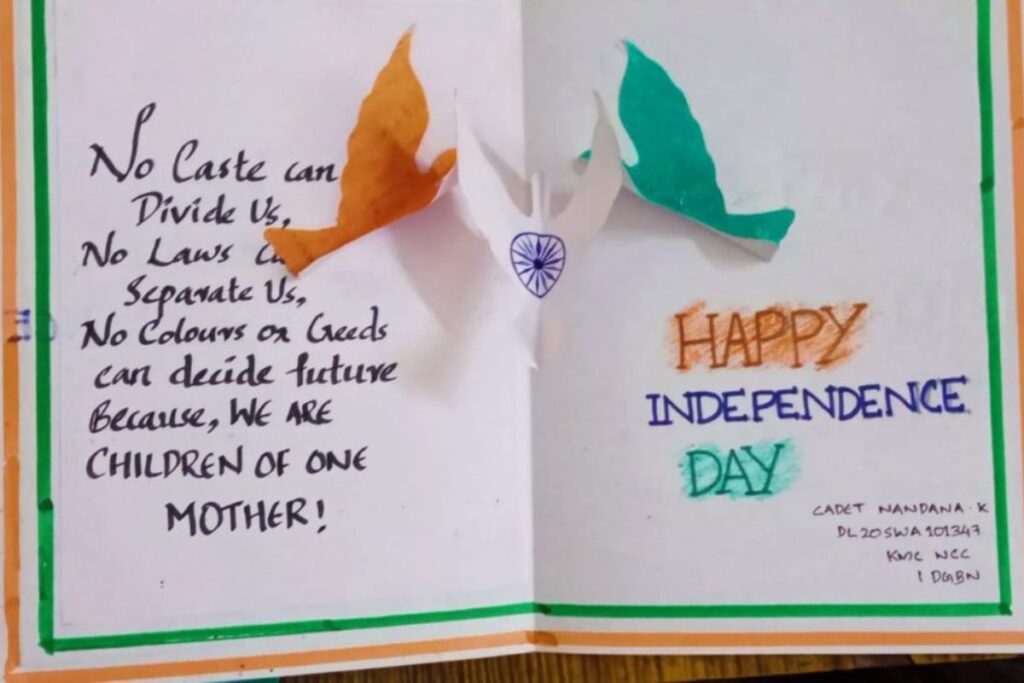 No Caste can
Divide Us,
No Laws
Separate Us,
No Colours or Creeds
can decide future
Because, WE ARE
CHILDREN OF ONE
MOTHER!
HAPPY
INDEPENDENCE
DAY
CADET NANDANA. K
DL20SWA101347
KMC NCC
1 DGBN